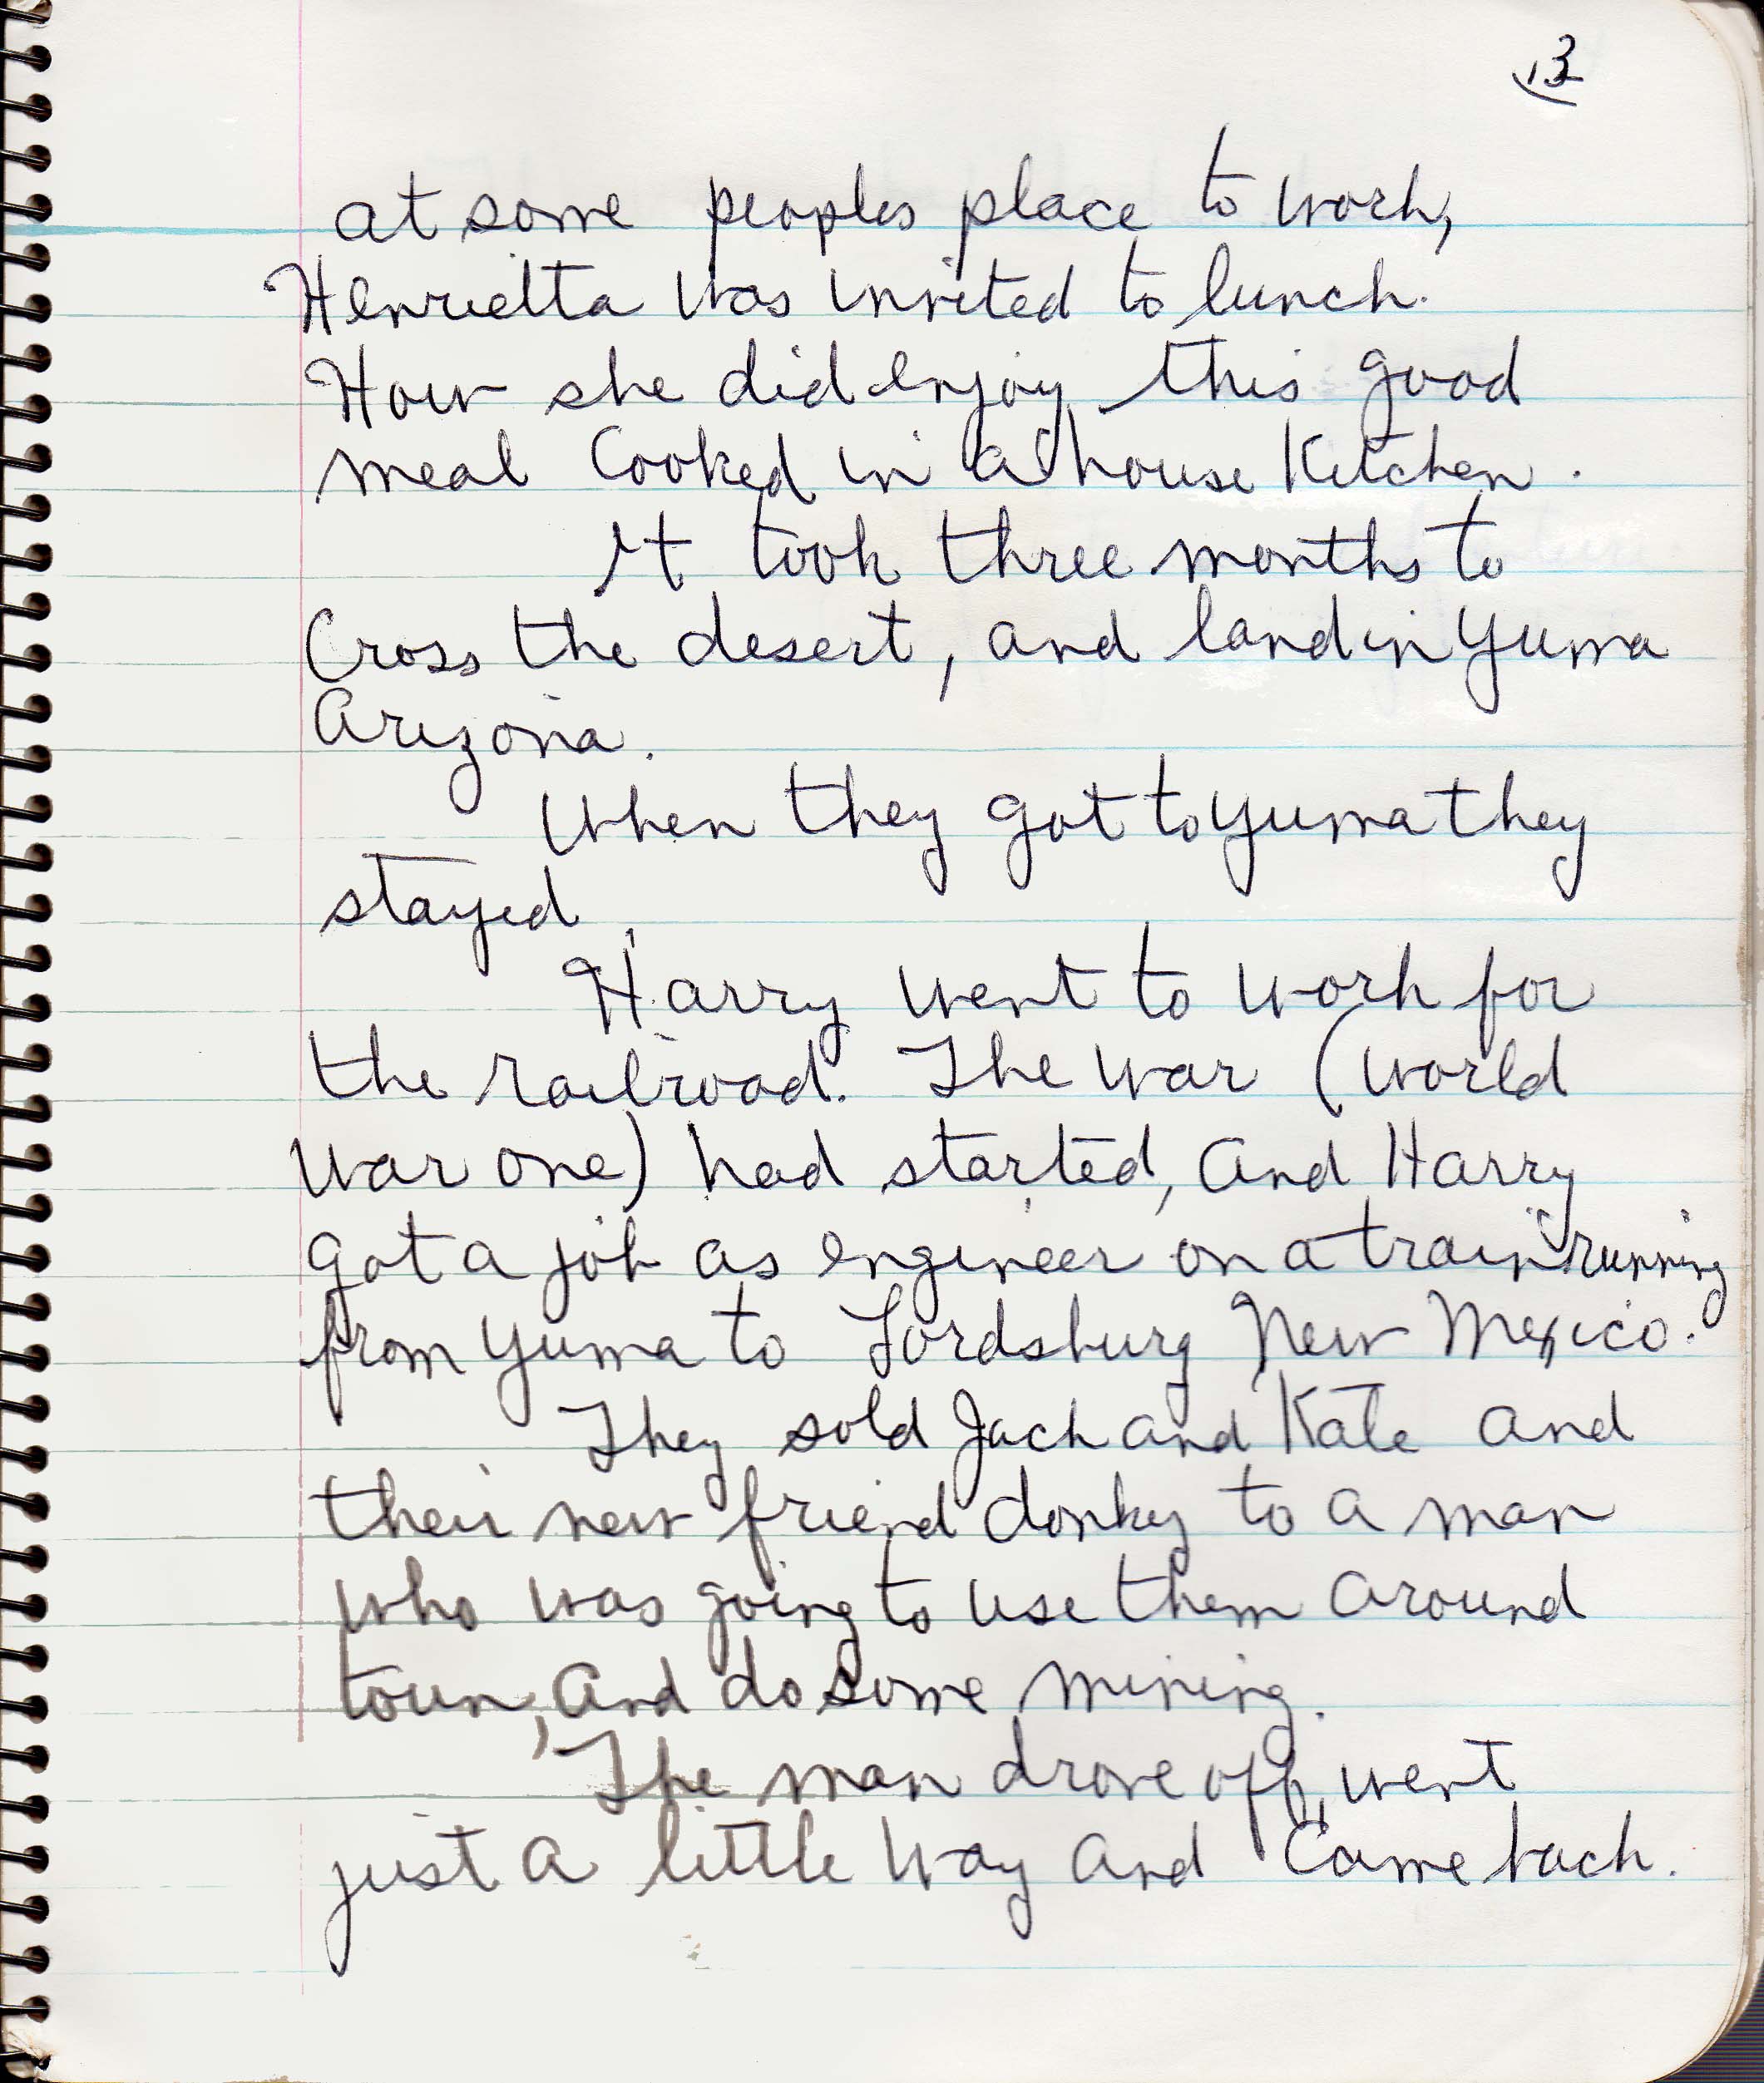 13
at some peoples place to work,
Henrietta was invited to lunch.
How she did enjoy this good
meal cooked in a house kitchen.
It took three months to
cross the desert, and land in Yuma
Arizona.
When they got to Yuma they
stayed.
Harry went to work for
the railroad. The war (world
war one) had started, and Harry
got a job as engineer on a train running
from Yuma to Lordsburg New Mexico.
They sold Jack and Kate and
their new friend donky to a man
who was going to use them around
toun, and do some mining.
The man drove off, went
just a little way and came back.